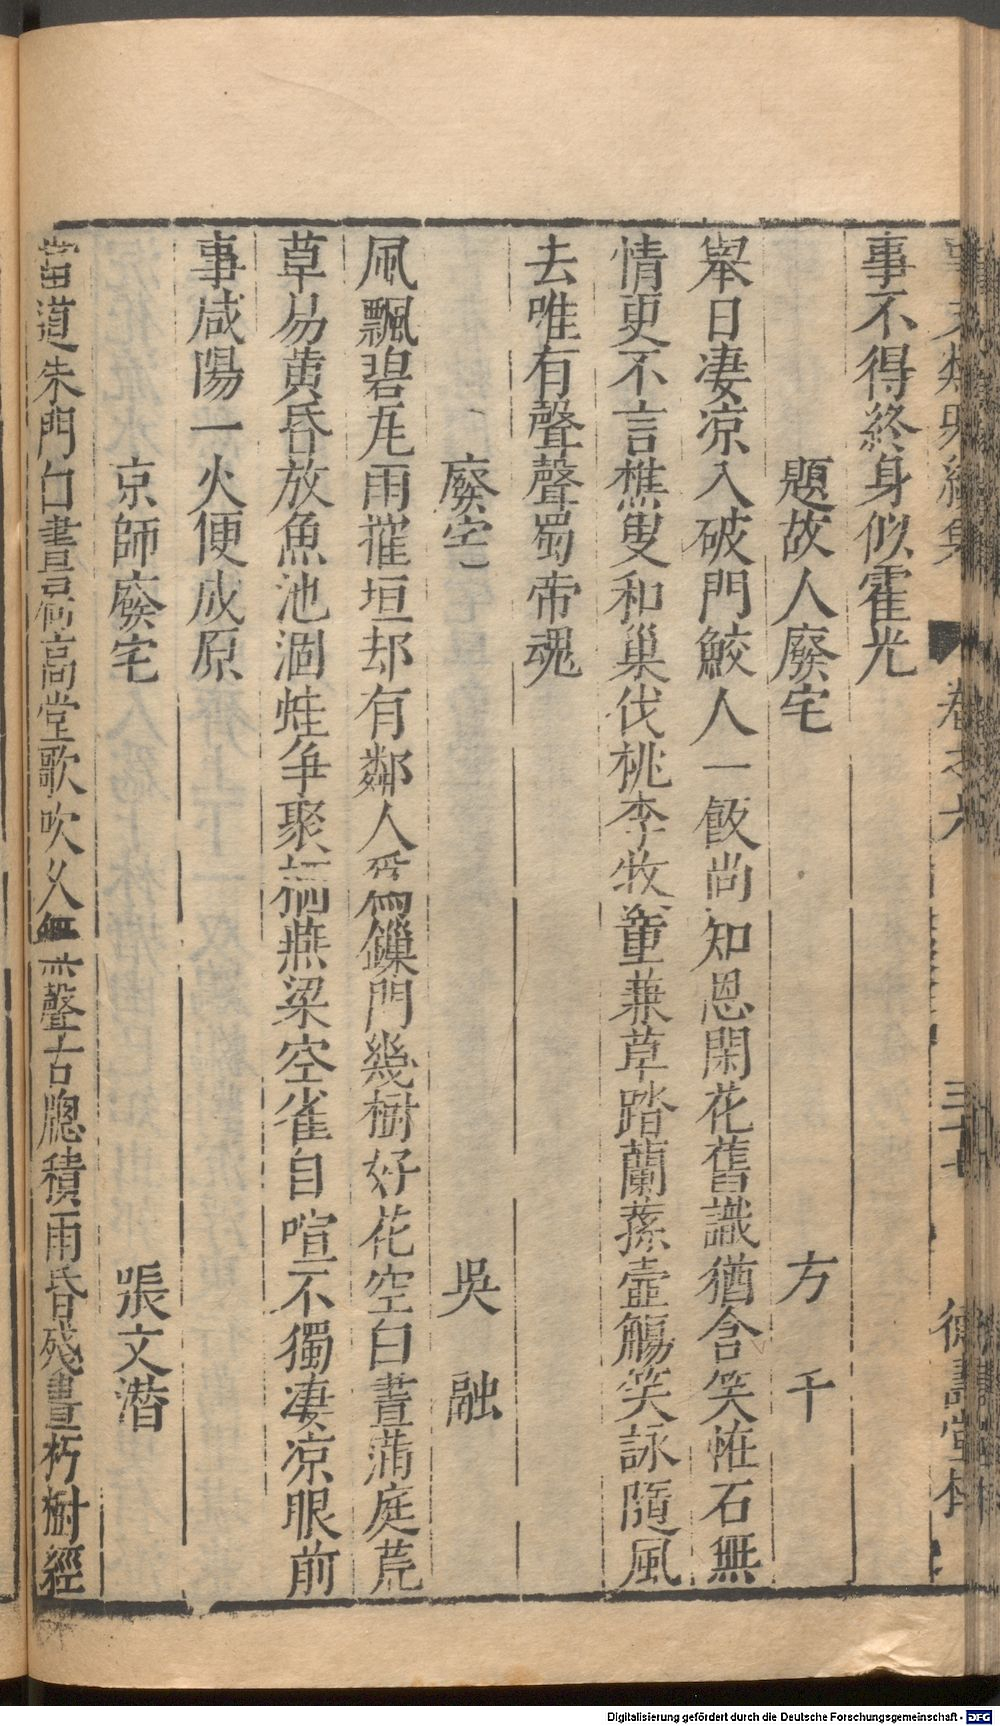 事文類聚續集 卷之六 德壽堂梓
事不得終身似霍光
題故人廢宅 方 干
舉目凄凉入破門鮫人一飯尚知恩閑花舊識猶含笑恠石無
情更不言樵叟和巢伐桃李牧童兼草踏蘭蓀壺觴笑詠隨風
去唯有聲聲蜀帝魂
廢宅 吳 融
風飄碧瓦雨摧垣却有鄰人爲鏁門幾樹好花空白晝滿庭荒
草易黄昏放魚池涸蛙争聚栖燕梁空雀自喧不獨凄凉眼前
事咸陽一火便成原
京師廢宅 張文潜
當道朱門白晝扃高堂歌吹久無聲古牕積雨昏殘畫朽樹經
Digitalisierung gefördert durch die Deutsche Forschungsgemeinschaft - DFG